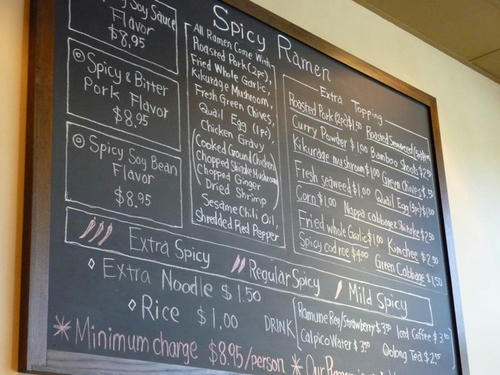 Spicy Ramen
Spicy Soy Sauce
Flavor
$8.95
Spicy & Bitter
Pork Flavor
$8.95
Spicy Soy Bean
Flavor
$8.95
All Ramen Come With
Roasted Pork (2pc),
Fried Whole Garlic,
Kikurage Mushroom,
Fresh Green Chives,
Quail Egg (1pc),
Chicken Gravy
(Cooked Ground Chicken)
(Chopped Shiitake Mushroom)
(Chopped Ginger)
Dried Shrimp
Sesame Chili Oil,
Shredded Red Pepper
Extra Topping
Roasted Pork (2pc) $1.50 Roasted Seaweed
Curry Powder $1.00 Bamboo Shoots
Kikurage mushroom $1.00 Green Chives
Fresh seaweed $1.00 Quail Egg
Corn $1.00 Nappa cabbage & Shiitake $2.50
Fried whole Garlic $1.00 Kimchee $2.50
Spicy cod roe $4.00 Green Cabbage $1.50
Extra Spicy Regular Spicy Mild Spicy
Extra Noodle $1.50
Rice $1.00
DRINK
Ramune Reg/Strawberry Iced Coffee
Calpico Water Oolong Tea
*Minimum charge $8.95/person *Our Ramen is